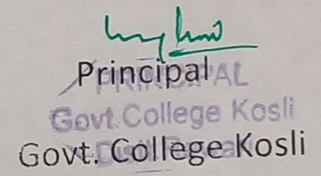 Principal
PRINCIPAL
Govt.College Kosli
Govt. College Kosli